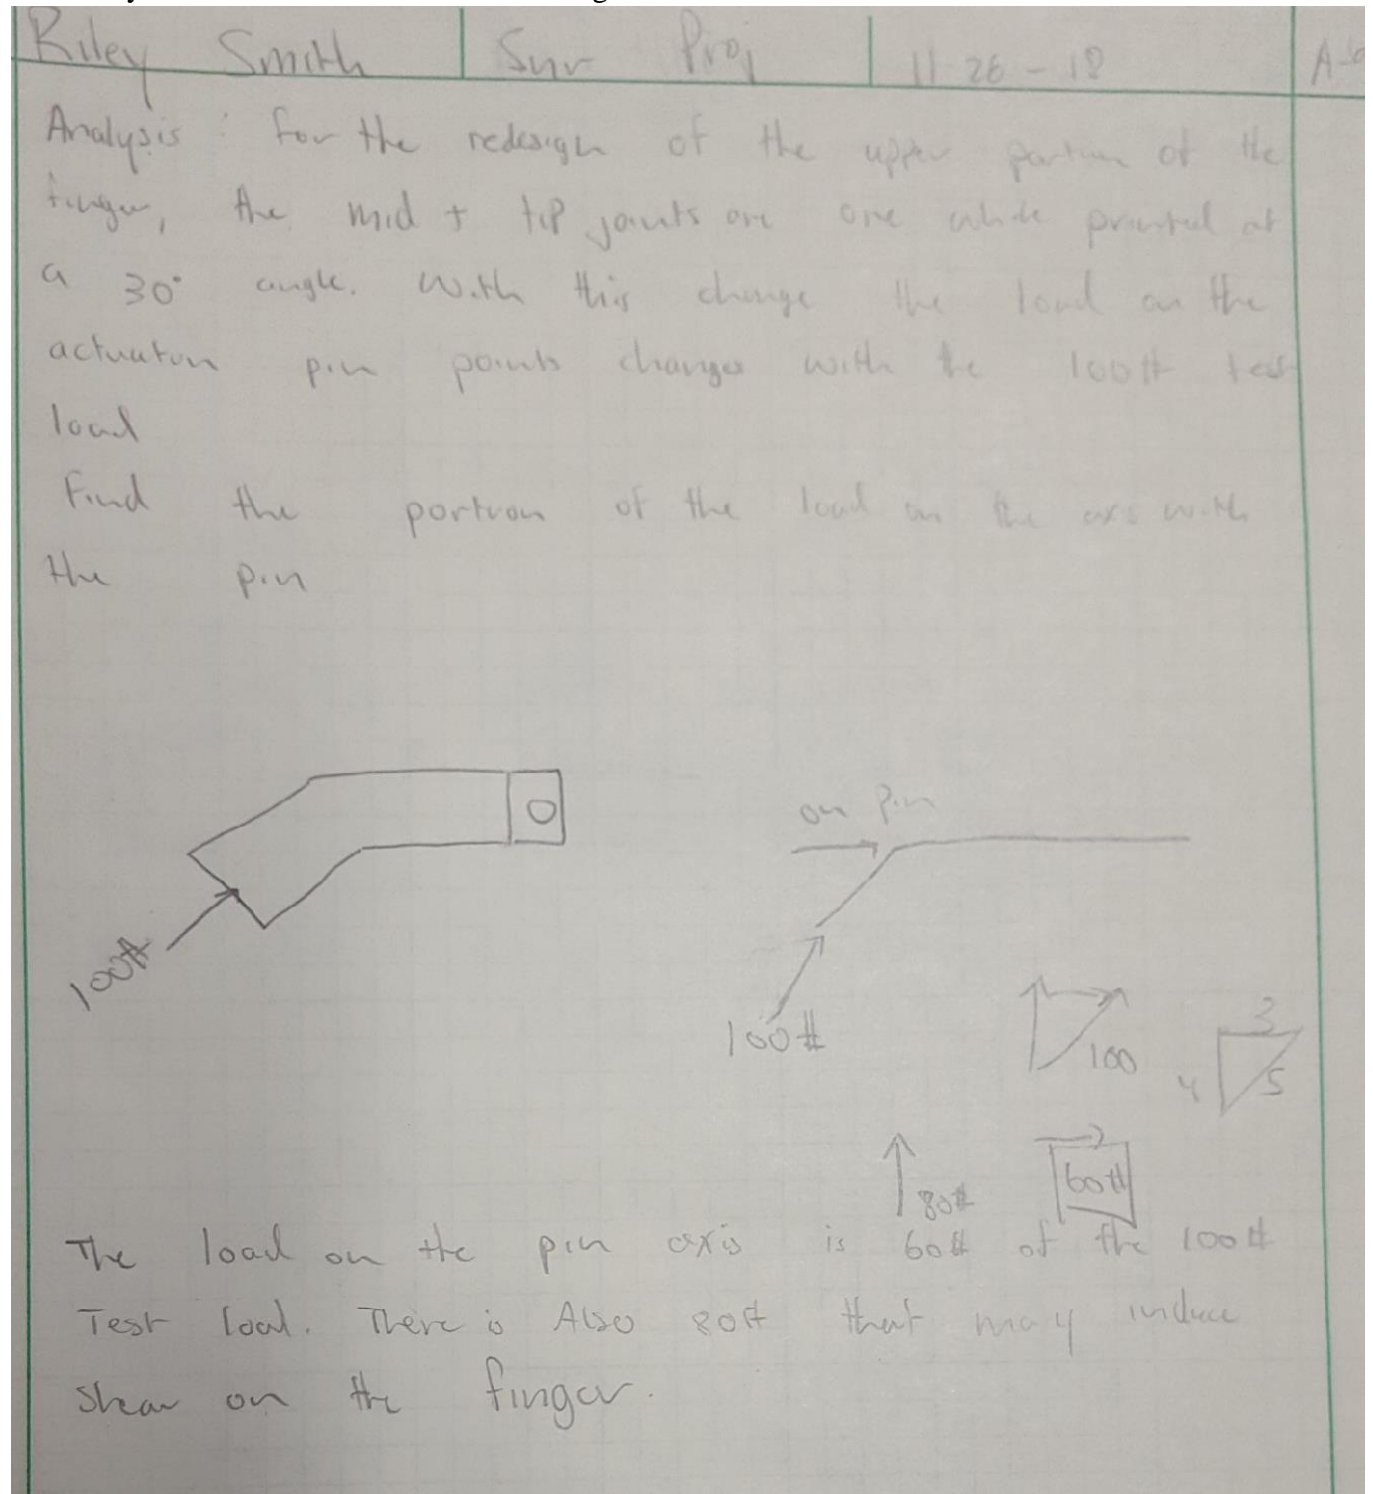 Riley Smith Snr Proj 11 26 - 18
Analysis : for the redesign of the upper portion of the
finger, the mid + tip joints are one while printed at
a 30° angle. With this change the load on the
actuation pin points changes with the 100# test
load
Find the portion of the load on the axis with
the pin
on pin
100#
100#
100
3
4 5
80#
60#
The load on the pin axis is 60# of the 100#
Test load. There is Also 80# that may induce
Shear on the finger.